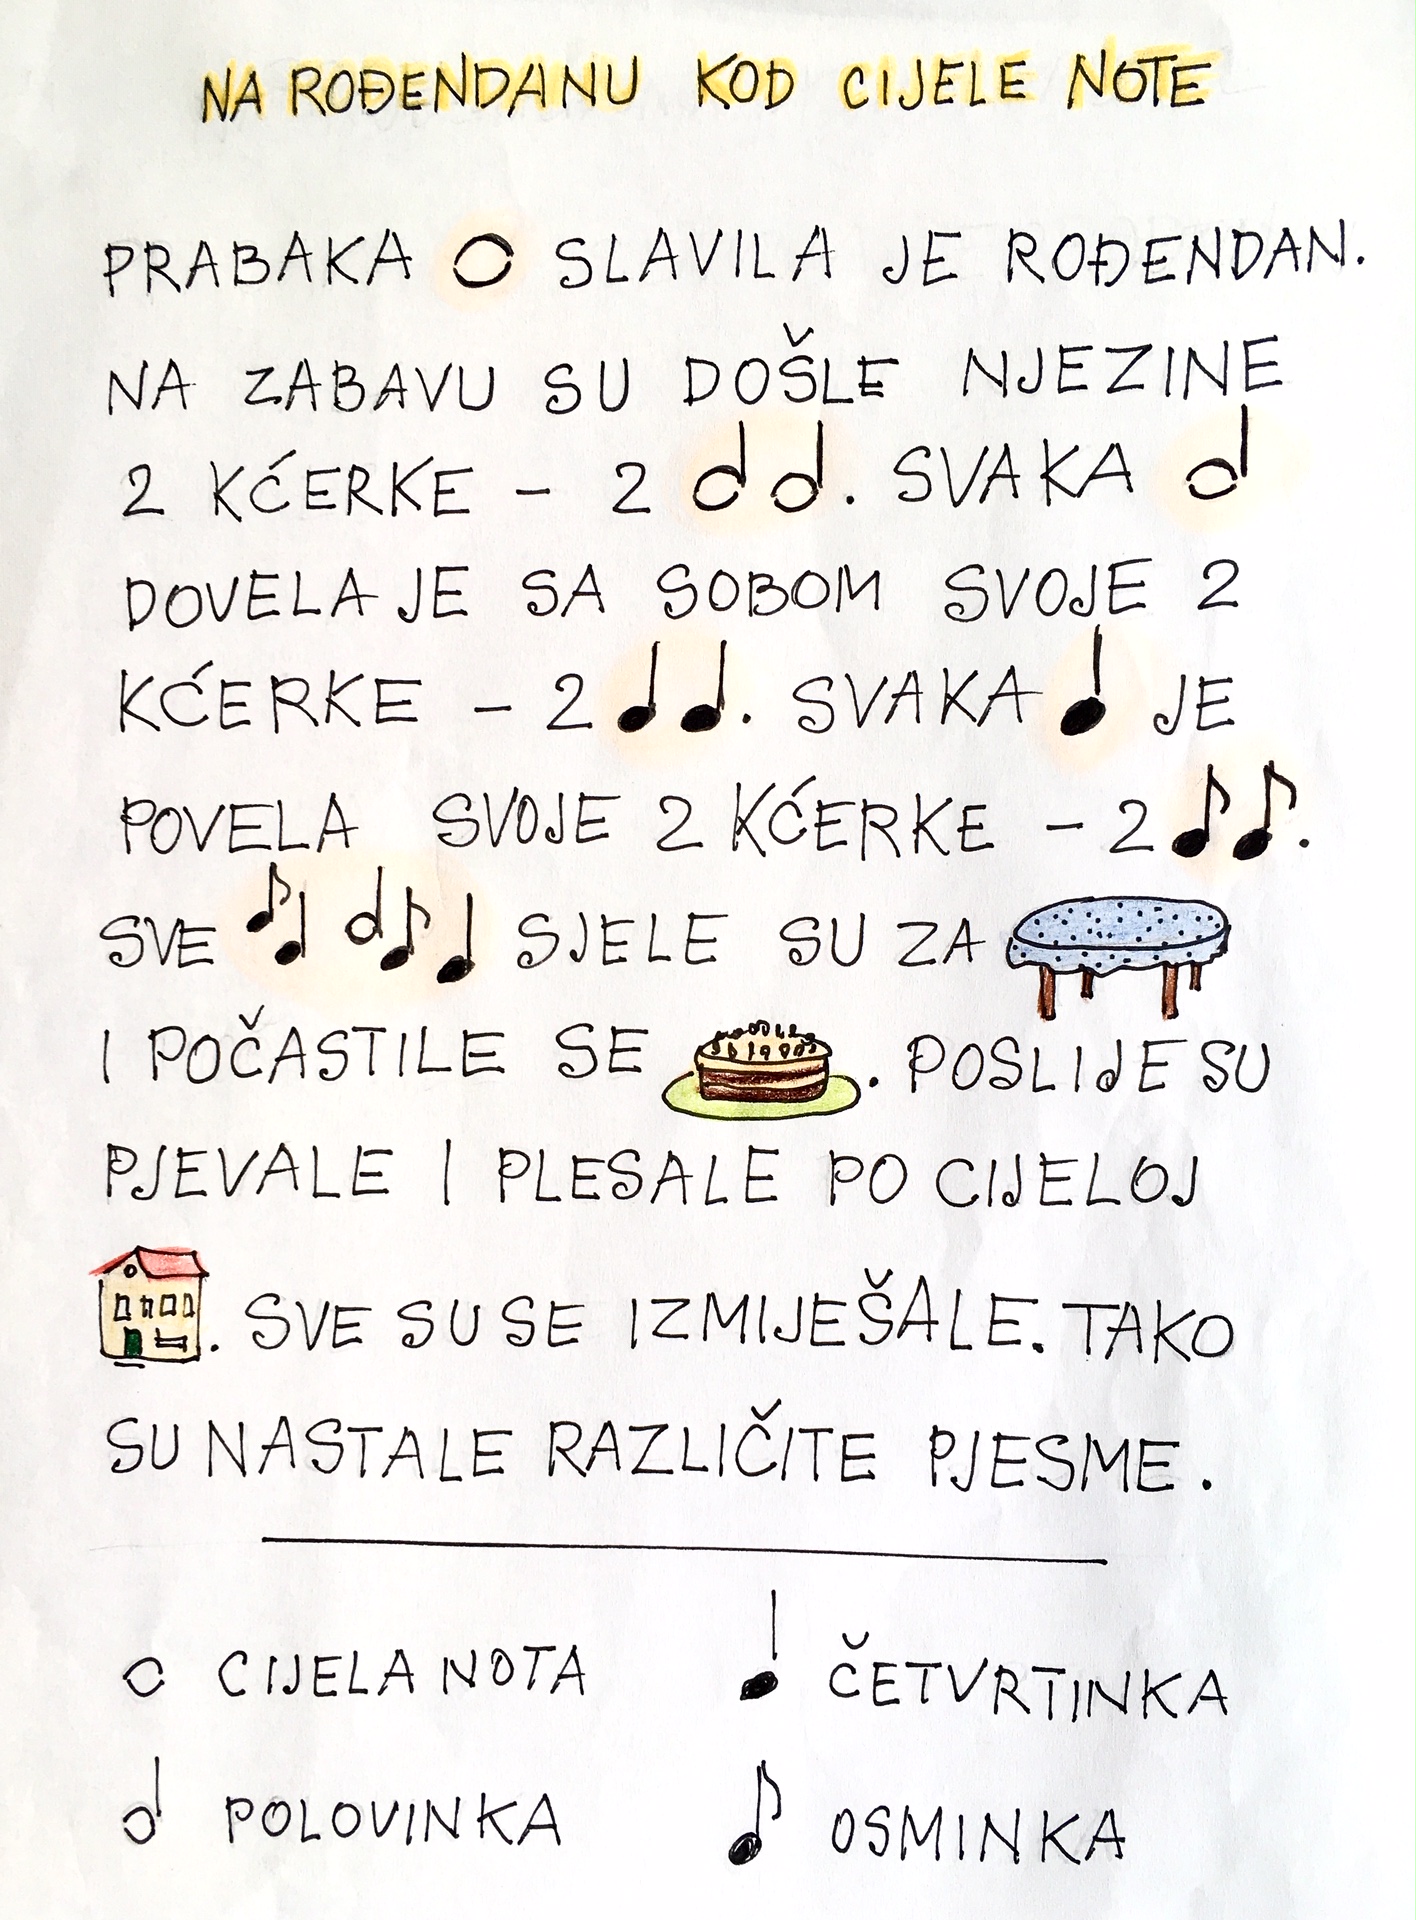 NA ROĐENDANU KOD CIJELE NOTE
PRABAKA SLAVILA JE ROĐENDAN.
NA ZABAVU SU DOŠLE NJEZINE
2 KĆERKE - 2 . SVAKA
DOVELA JE SA SOBOM SVOJE 2
KĆERKE - 2 . SVAKA JE
POVELA SVOJE 2 KĆERKE - 2 .
SVE SJELE SU ZA
I POČASTILE SE . POSLIJE SU
PJEVALE I PLESALE PO CIJELOJ
. SVE SU SE IZMIJEŠALE. TAKO
SU NASTALE RAZLIČITE PJESME.
CIJELA NOTA
ČETVRTINKA
POLOVINKA
OSMINKA